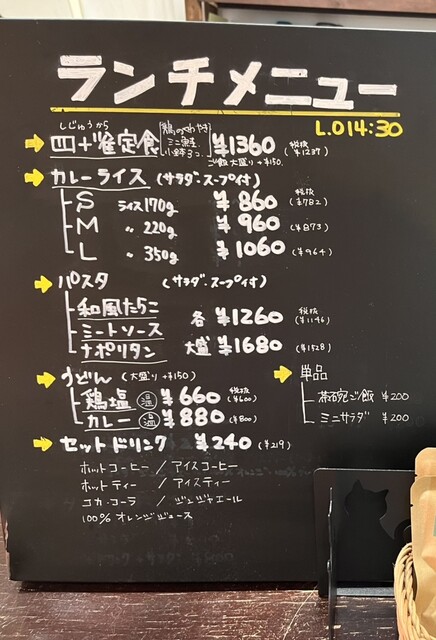 ランチメニュー
L.O14:30
しじゅうから
四十雀定食 鶏のてりやき ミニ魚 小鉢3コ ¥1360 税抜 (¥1237)
ご飯大盛り+¥150.
カレーライス (サラダ・スープ付)
S ライス170g ¥860 税抜 (¥782)
M 〃 220g ¥960 (¥873)
L 〃 350g ¥1060 (¥964)
パスタ (サラダ・スープ付)
和風たらこ
ミートソース 各 ¥1260 税抜 (¥1146)
ナポリタン 大盛 ¥1680 (¥1528)
うどん (大盛り+¥150)
鶏塩 温 ¥660 税抜 (¥600)
カレー 温 ¥880 (¥800)
単品
茶碗ご飯 ¥200
ミニサラダ ¥200
セットドリンク ¥240 (¥219)
ホットコーヒー / アイスコーヒー
ホットティー / アイスティー
コカ・コーラ / ジンジャエール
100% オレンジジュース